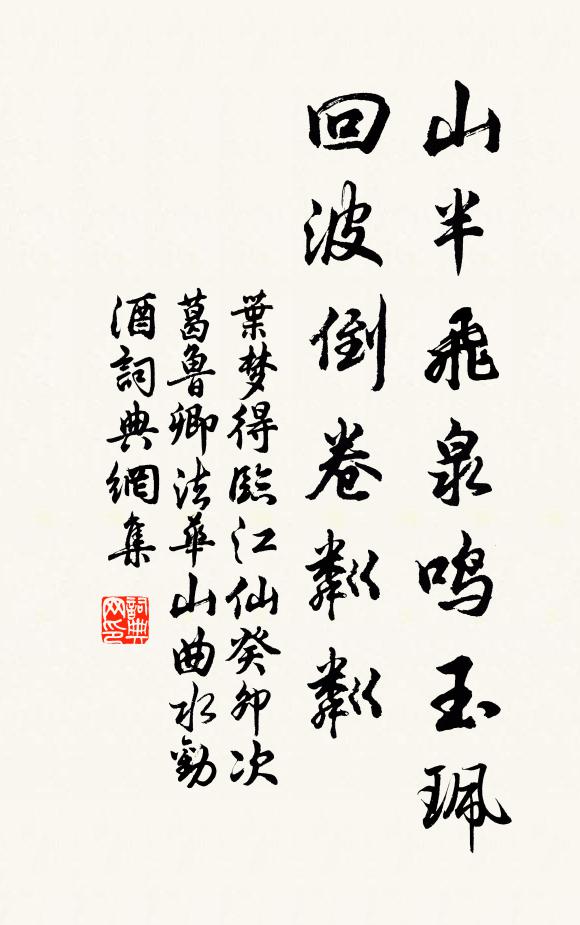 山半飛泉鳴玉珮
回波倒卷粼粼
葉梦得臨江仙癸卯次
葛魯卿法華山曲水勸
酒詞典網集
詞典网印